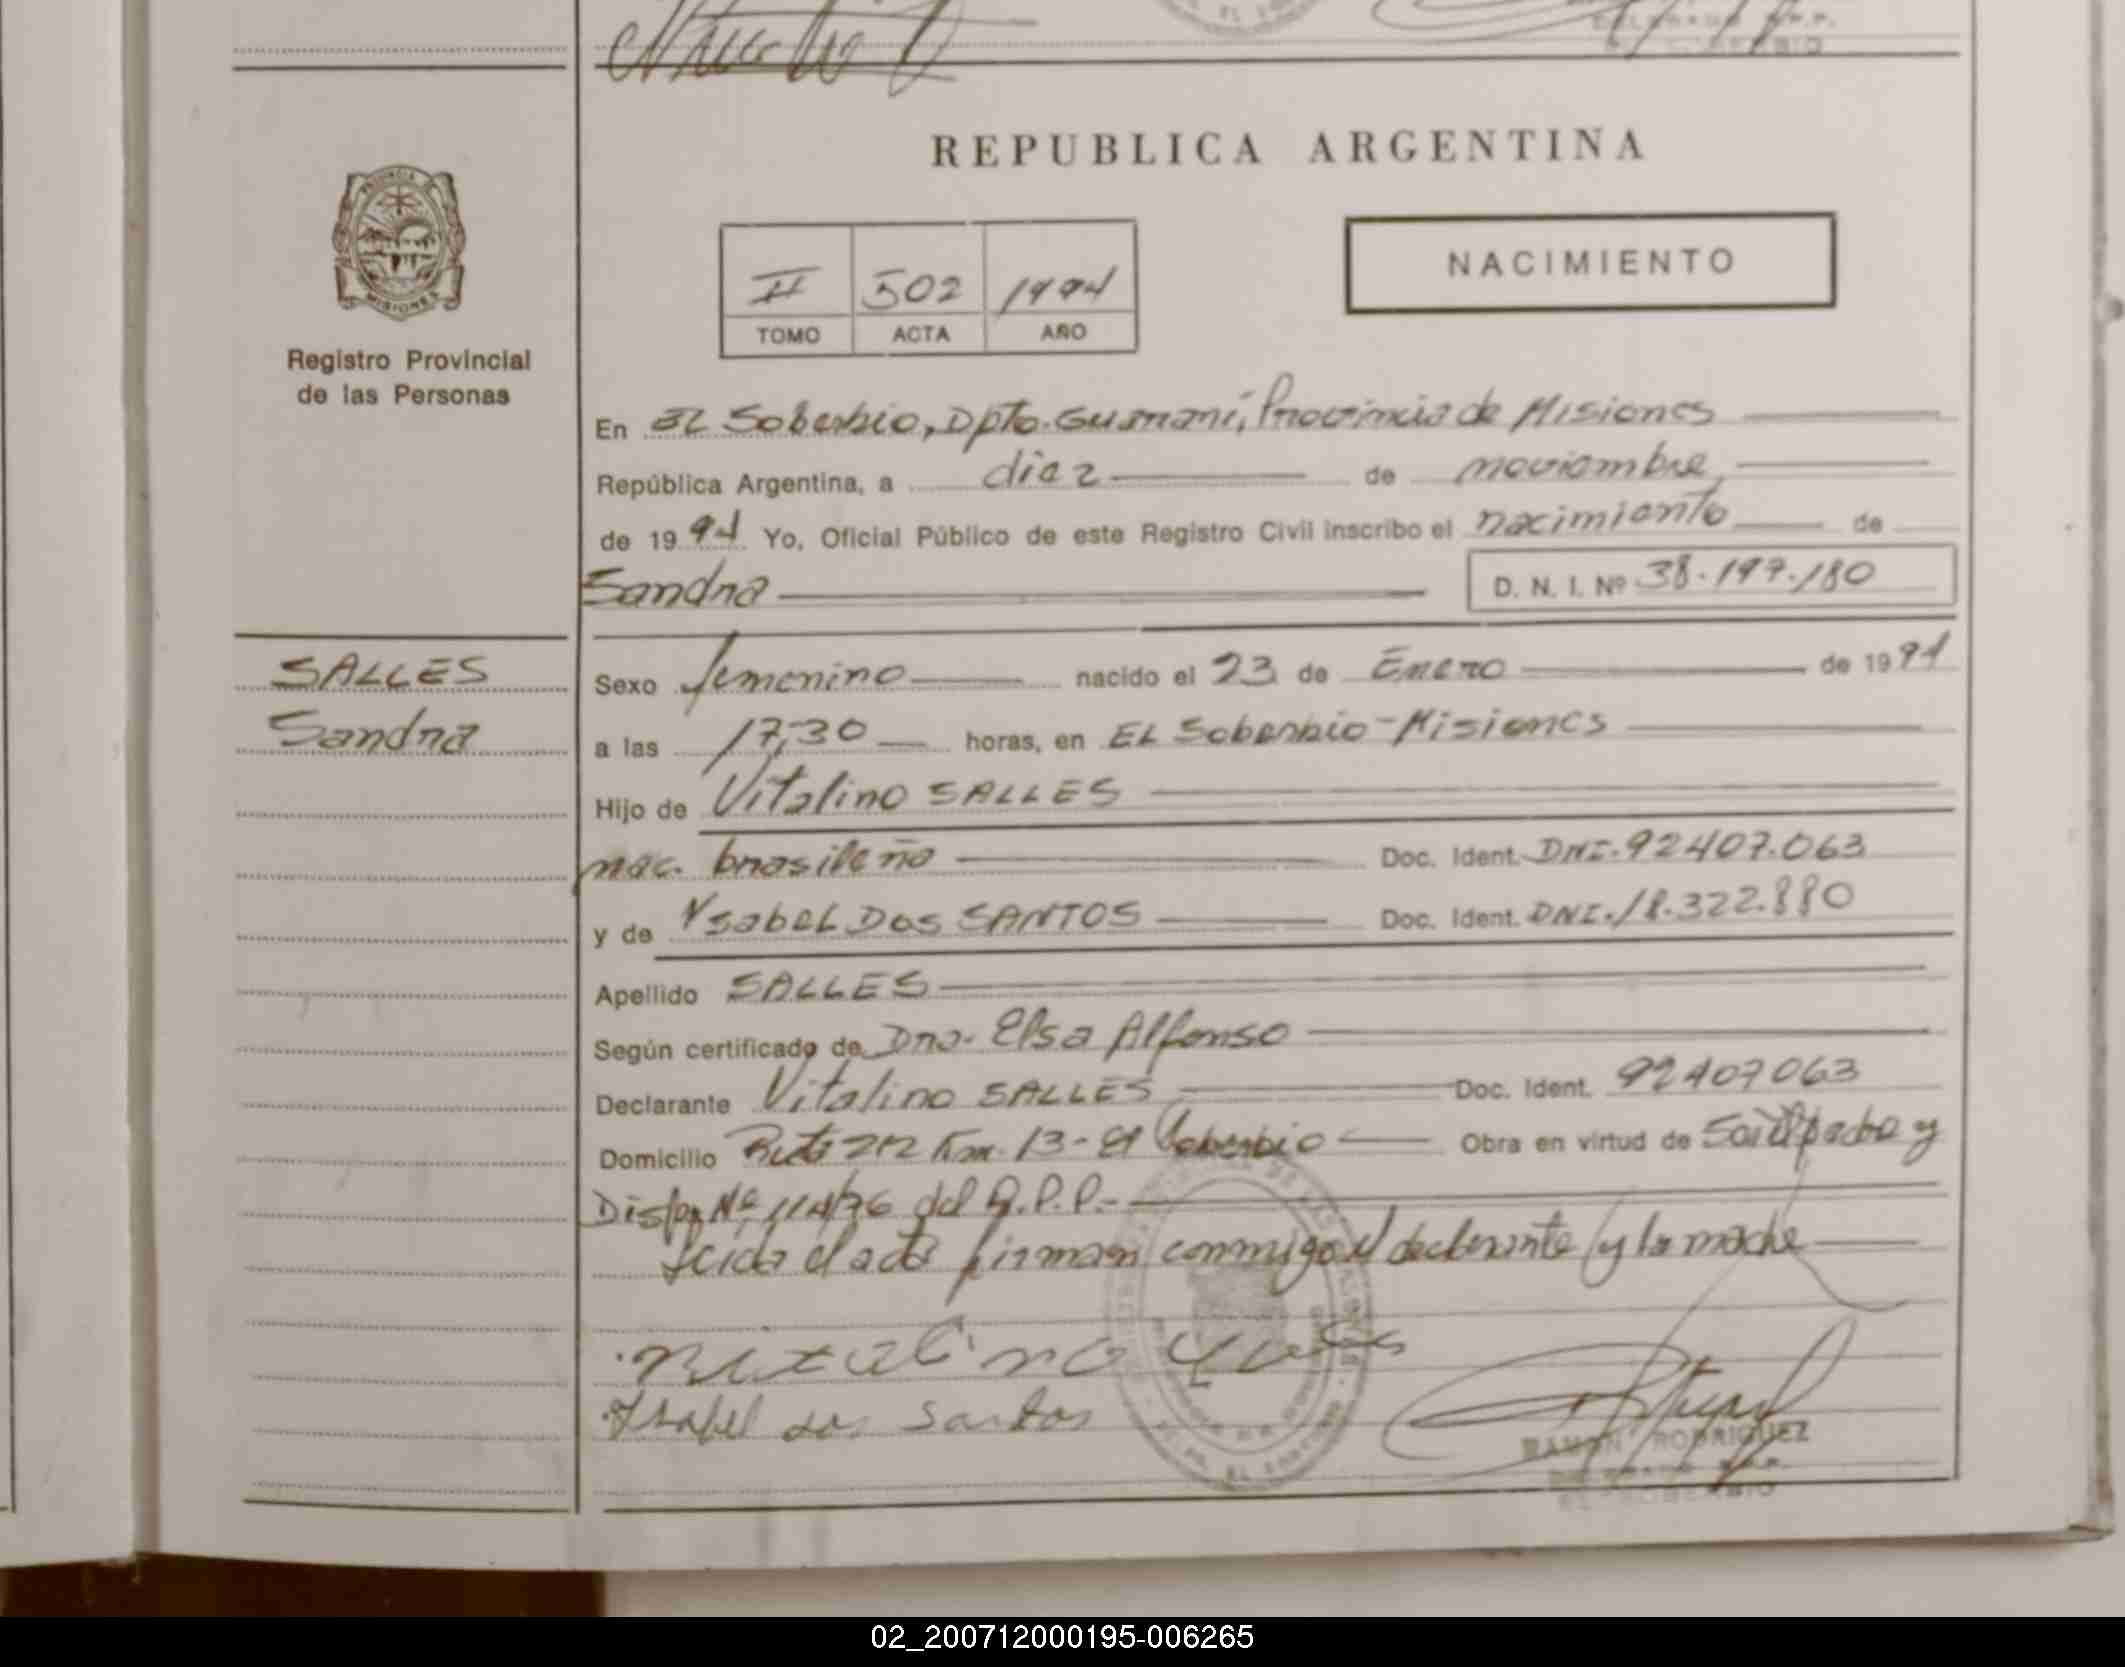 REPUBLICA ARGENTINA
PROVINCIA DE
MISIONES
Registro Provincial
de las Personas
II 502 1994
TOMO ACTA AÑO
NACIMIENTO
En EL Soberbio, Dpto. Guaraní, Provincia de Misiones
República Argentina, a diez de noviembre,
de 1994 Yo, Oficial Público de este Registro Civil inscribo el nacimiento de
Sandra D. N. I. Nº 38.197.180
SALLES
Sandra
Sexo femenino nacido el 23 de Enero de 1994
a las 17,30 horas, en EL Soberbio-Misiones
Hijo de Vitalino SALLES
nac. brasileño Doc. Ident. DNI. 92407.063
y de YsabeL DOS SANTOS Doc. Ident. DNI. 18.322.880
Apellido SALLES
Según certificado de Dra. Elsa Alfonso
Declarante Vitalino SALLES Doc. Ident. 92407063
Domicilio Ruta 212 Km. 13- El Soberbio Obra en virtud de y
Dispo. Nº 114/76 del R.P.P.-
Leida el acta firman conmigo el declarante y la madre
Ysabel dos Santos
RAMON RODRIGUEZ
EL SOBERBIO
02_200712000195-006265